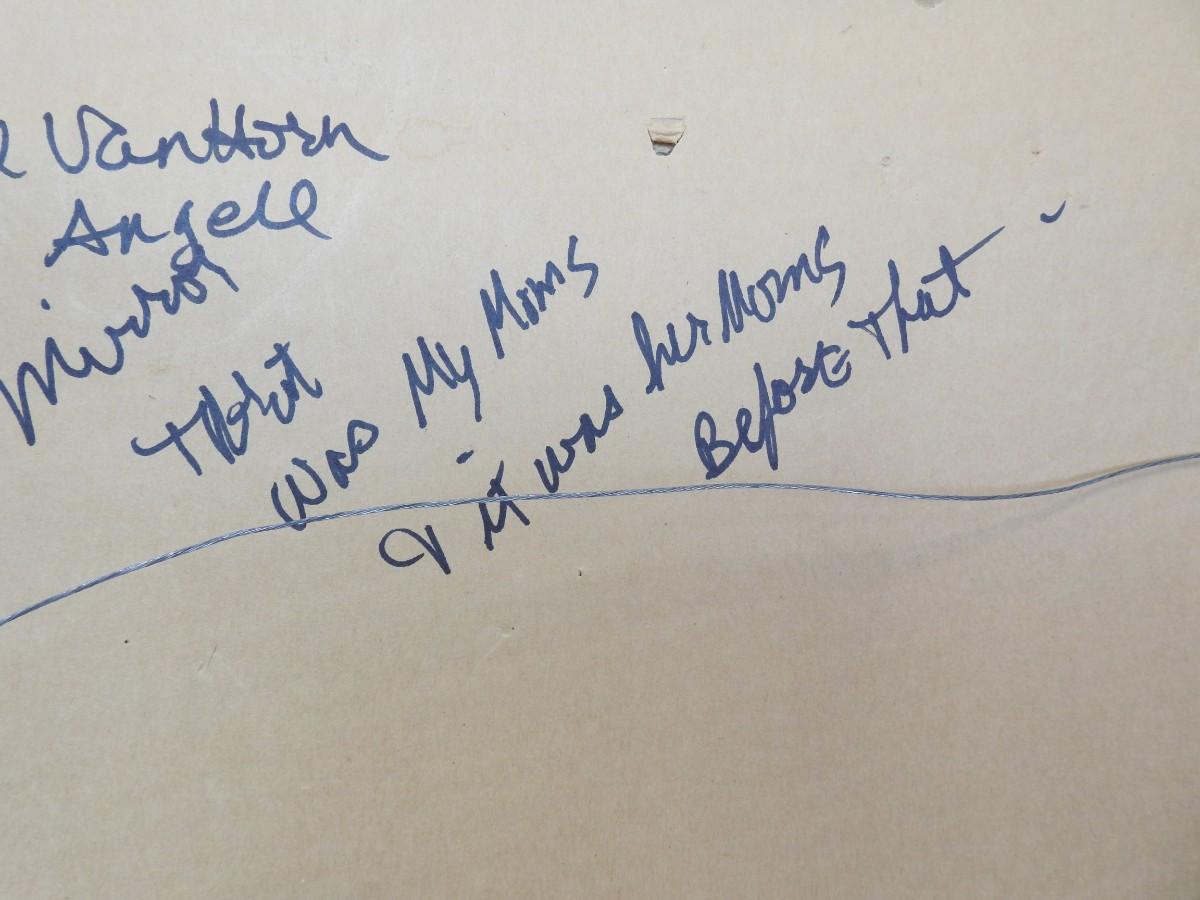 VanHorn
Angell
Mirror
that
was My Moms
& it was her Moms
Before That